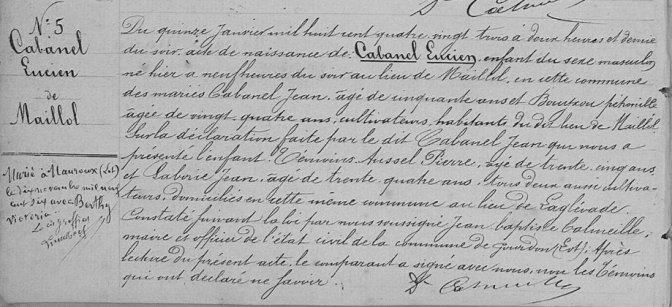 N° 5
Cabanel
Lucien
de
Maillol
Marié à Mauroux (Lot)
le dix novembre mil neuf
cent six avec Berthe
Victoria
Le greffier
Du quinze janvier mil huit cent quatre vingt trois à deux heures et demie
du soir, acte de naissance de Cabanel Lucien, enfant du sexe masculin
né hier à neuf heures du soir au lieu de Maillol, en cette commune
des mariés Cabanel Jean, âgé de cinquante ans et Bouyxou pétronille
âgée de vingt-quatre ans, cultivateurs, habitants du dit lieu de Maillol.
Sur la déclaration faite par le dit Cabanel Jean qui nous a
présenté l'enfant. Témoins Aussel Pierre, âgé de trente cinq ans
et Laborie Jean, âgé de trente quatre ans, tous deux aussi cultiva-
teurs, domiciliés en cette même commune au lieu de Laglévade.
Constaté suivant la loi par nous soussigné Jean baptiste Calmeille,
maire et officier de l'état civil de la commune de Gourdon (Lot). Après
lecture du présent acte, le comparant a signé avec nous, non les Témoins
qui ont déclaré ne savoir.